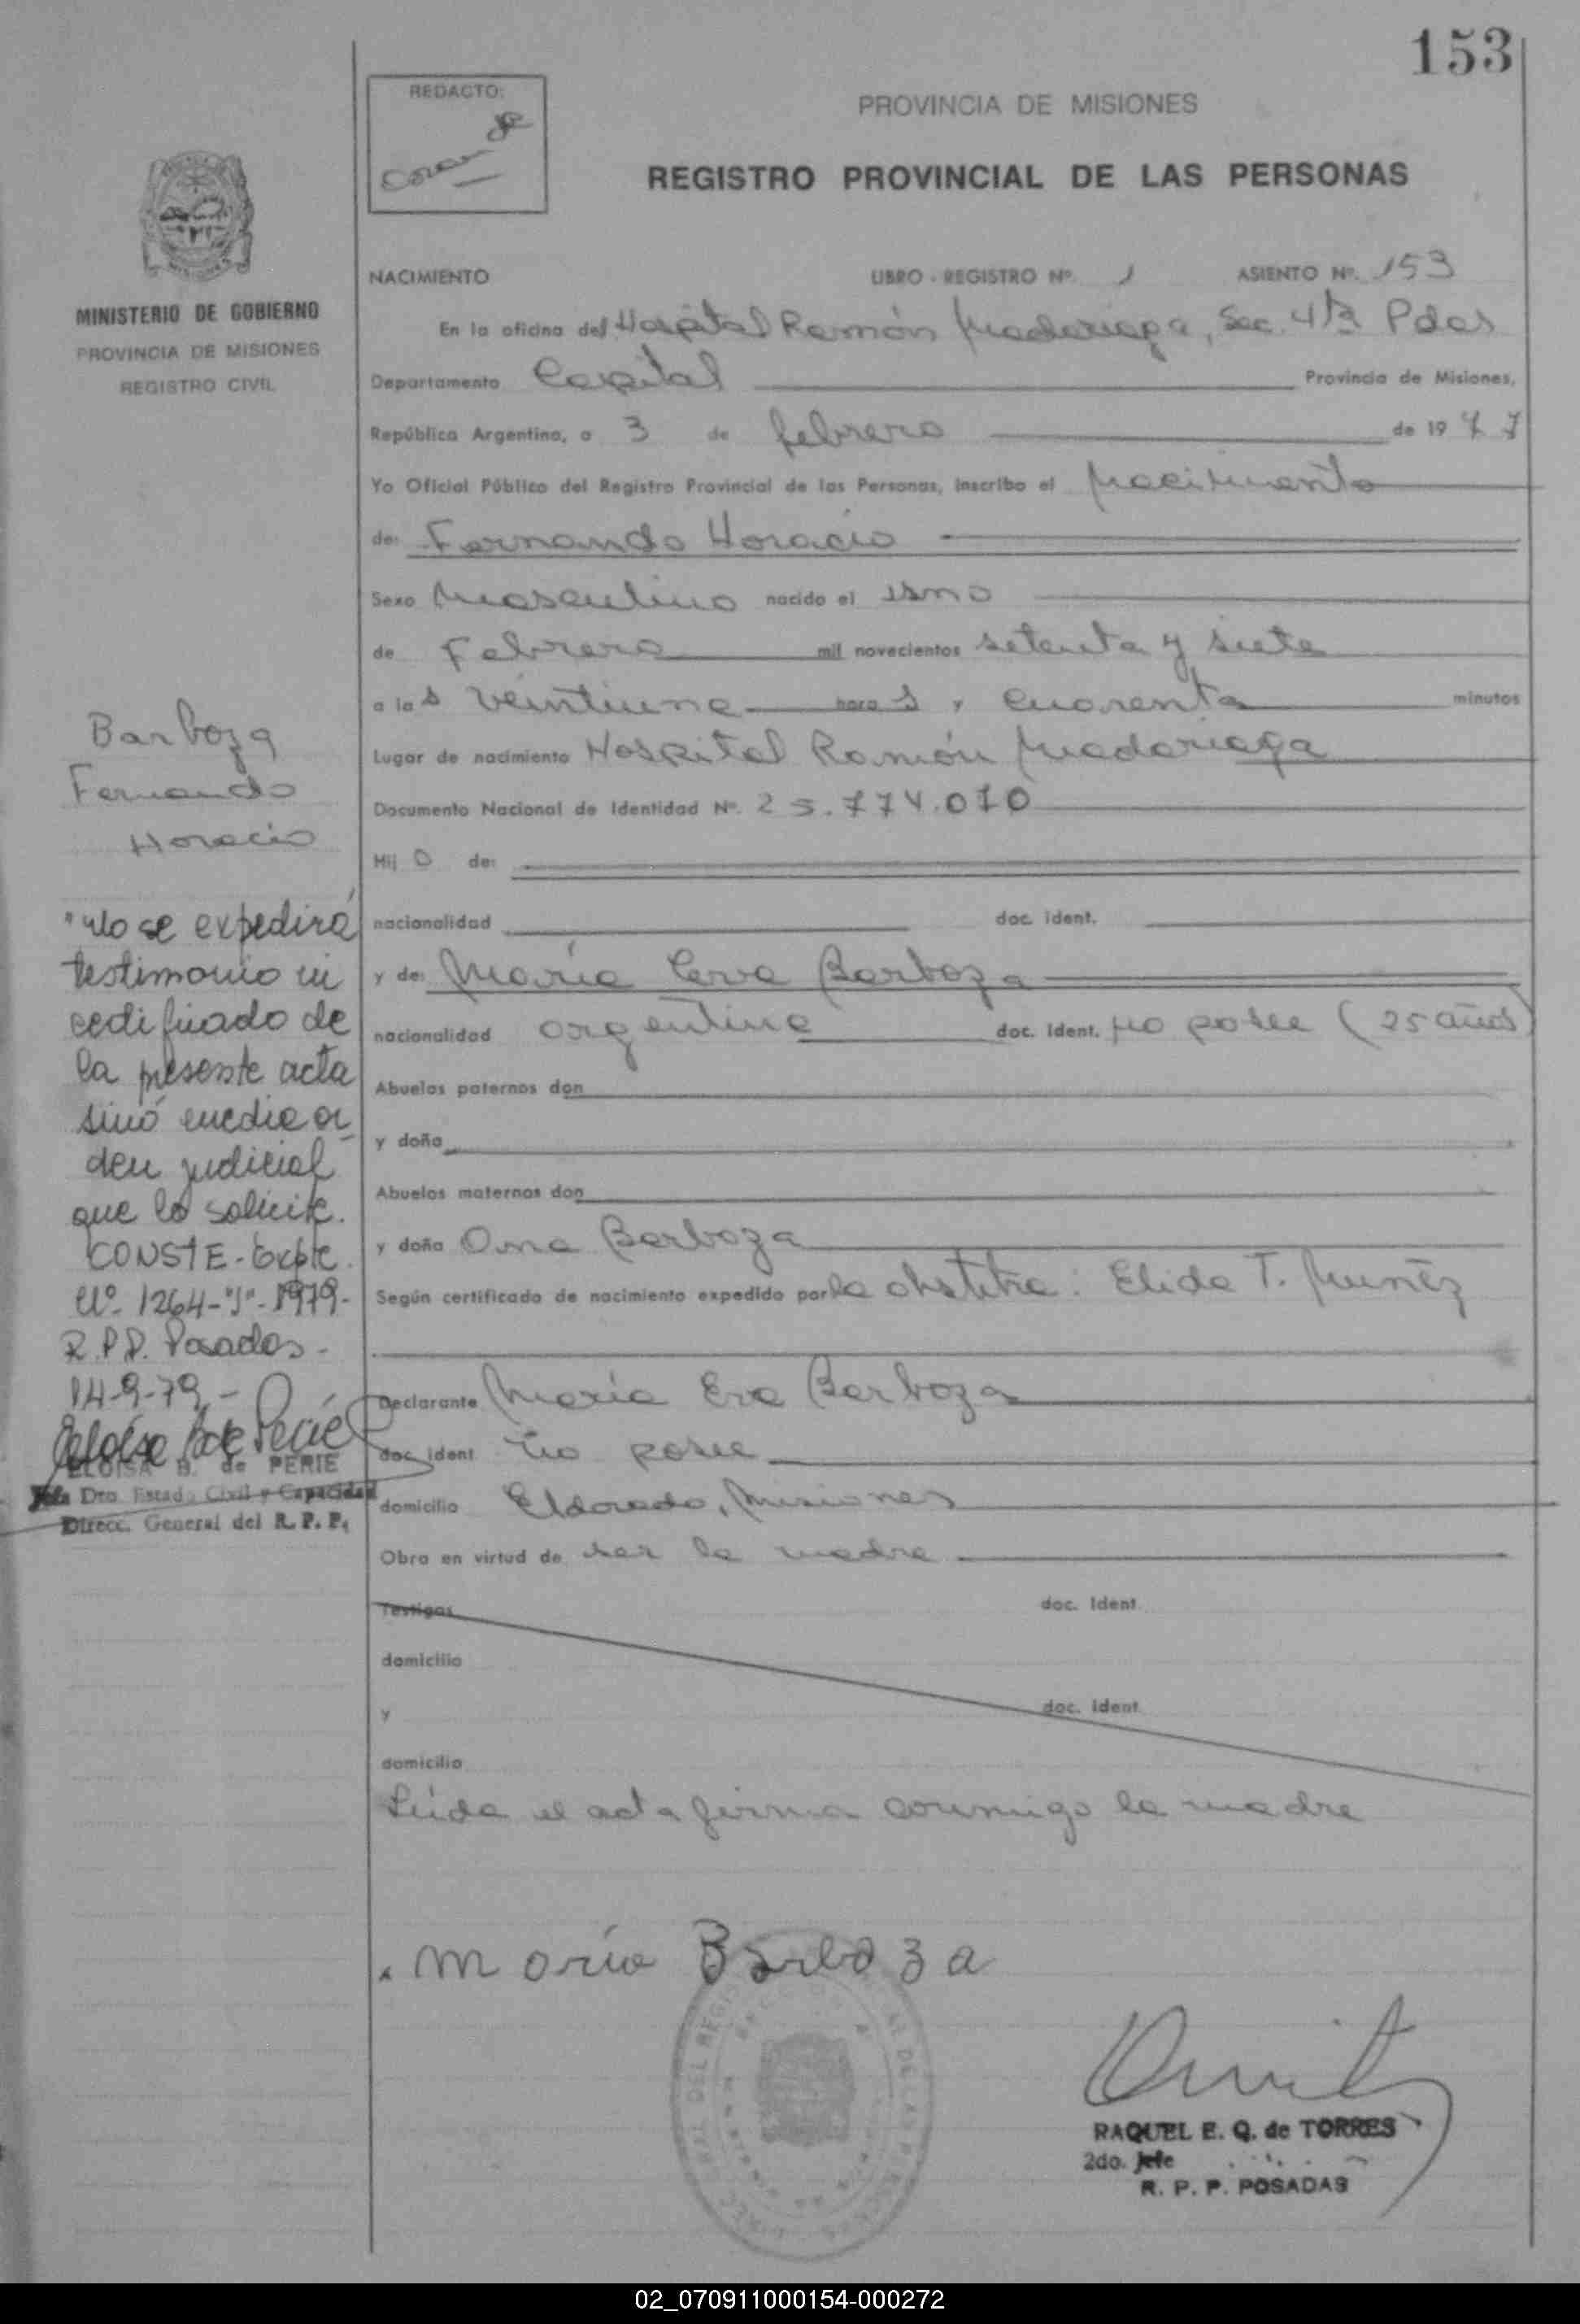 153
REDACTO:
PROVINCIA DE MISIONES
REGISTRO PROVINCIAL DE LAS PERSONAS
MINISTERIO DE GOBIERNO
PROVINCIA DE MISIONES
REGISTRO CIVIL
NACIMIENTO LIBRO - REGISTRO Nº. 1 ASIENTO Nº. 153
En la oficina del Hospital Ramón Madariaga, Sec. 4ta Pdas
Departamento Capital Provincia de Misiones,
República Argentina, a 3 de febrero de 1977
Yo Oficial Público del Registro Provincial de las Personas, inscribo el Nacimiento
de: Fernando Horacio
Sexo Masculino nacido el 
de Febrero mil novecientos setenta y siete
a las veintiuna horas y cuarenta minutos
Lugar de nacimiento Hospital Ramón Madariaga
Documento Nacional de Identidad Nº. 25.774.010
Hijo de:
nacionalidad doc. ident.
y de: María Eva Barboza
nacionalidad argentina doc. ident. no posee (25 años)
Abuelos paternos don
y doña
Abuelos maternos don
y doña Barboza
Según certificado de nacimiento expedido por la obstetra: Elida T.
Declarante María Eva Barboza
doc. ident no posee
domicilio Eldorado, Misiones
Obra en virtud de ser la madre
Testigos doc. ident
domicilio
y doc. ident
domicilio
Leída el acta firma conmigo la madre
María Barboza
RAQUEL E. Q. de TORRES
2do. Jefe
R. P. P. POSADAS
Barboza
Fernando
Horacio
"No se expedirá
testimonio ni
certificado de
la presente acta
sinó media or
den judicial
que lo solicite.
CONSTE - Expte.
Nº 1264-"J"-1979-
R.P.P. Posadas -
14-9-79 -
ELOISA B. de PERIE
Jefa Dto. Estado Civil y Capacidad
Direcc. General del R. P. P.
02_070911000154-000272